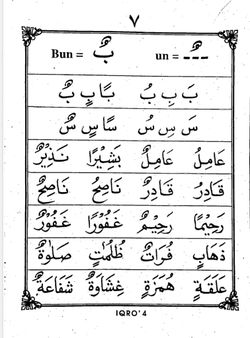 ٧
Bun = بٌ un = ـٌ
بَ بِ بُ بًا بٍ بٌ
سَ سِ سُ سًا سٍ سٌ
عَامِلُ عَامِلٌ بَشِيْرًا نَذِيْرٌ
قَادِرُ قَادِرٌ نَاصِحُ نَاصِحٌ
رَحِيْمًا رَحِيْمٌ غَفُوْرًا غَفُوْرٌ
ذَهَابٍ فُرَاتٌ ظُلُمٰتٍ صَلٰوةٌ
عَلَقَةٍ هُمَزَةٍ غِشَاوَةٌ شَفَاعَةٌ
IQRO' 4